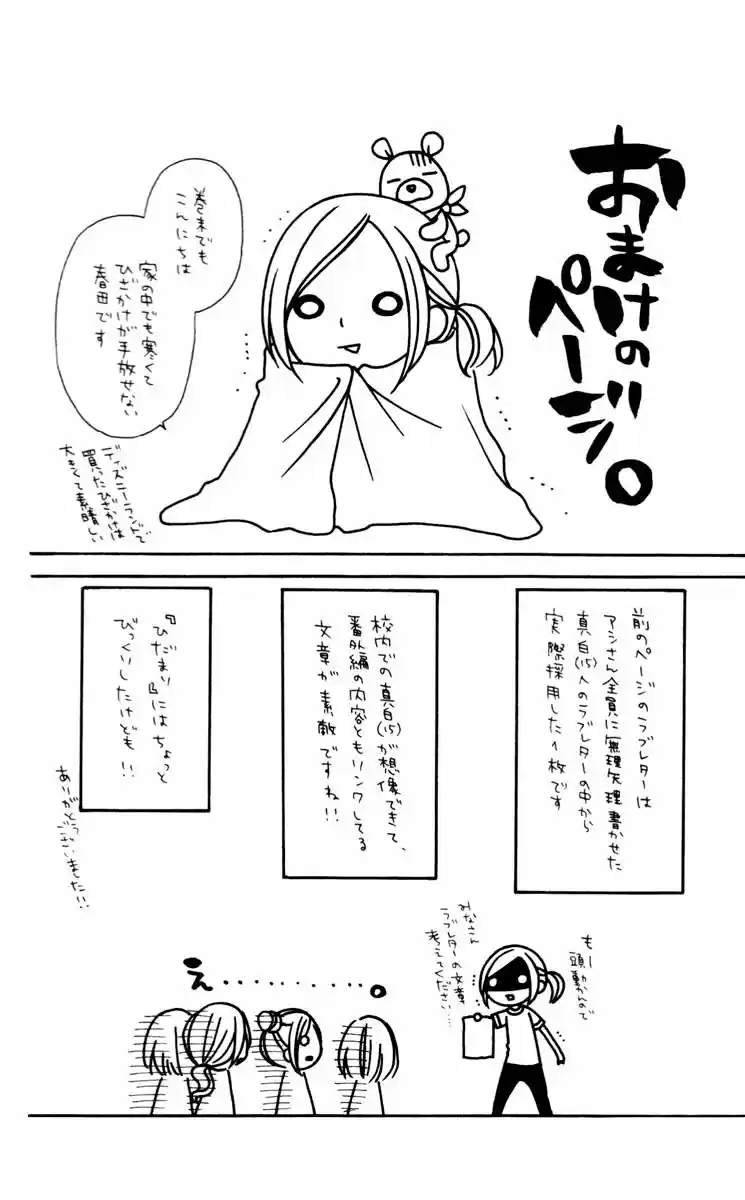 おまけの
ページ。
巻末でも
こんにちは
家の中でも寒くて
ひざかけが手放せない
春田です
ディズニーランドで
買ったひざかけは
大きくて素晴しい
前のページのラブレターは
アシさん全員に無理矢理書かせた
真白(15)人のラブレターの中から
実際採用した1枚です
校内での真白(15)が想像できて、
番外編の内容ともリンクしてる
文章が素敵ですね!!
『ひだまり』にはちょっと
びっくりしたけども!!
ありがとうございました!!
もー
頭動かんので
みなさん
ラブレターの文章
考えてください…
え………。